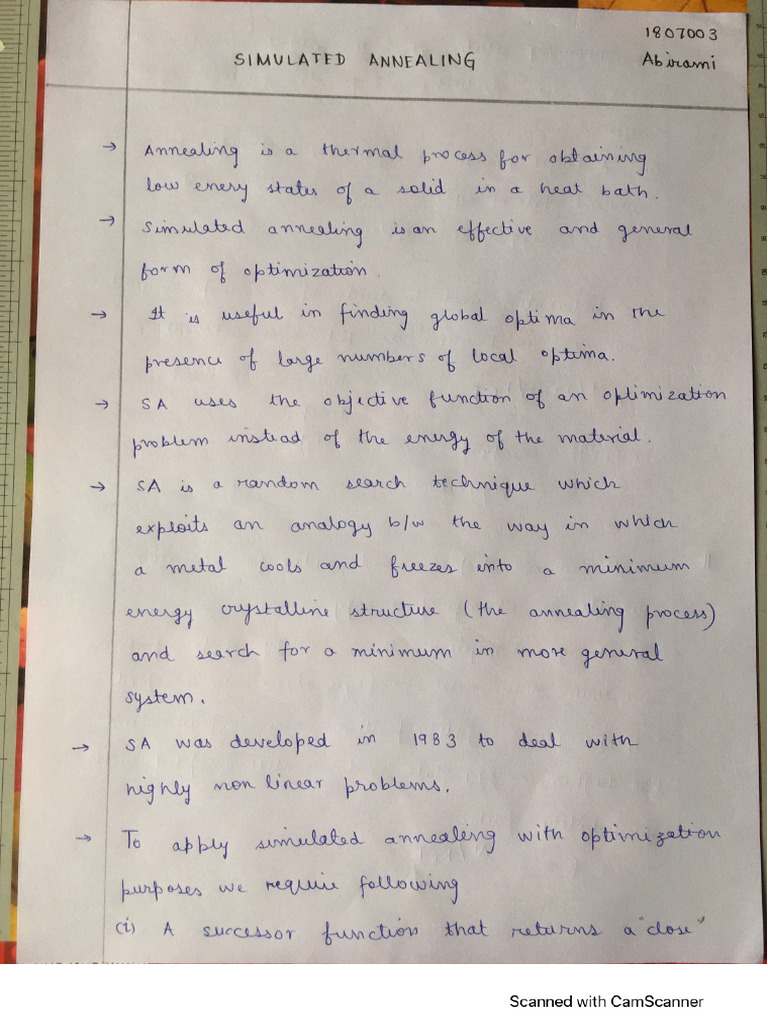 1807003
SIMULATED ANNEALING
Abirami
→ Annealing is a thermal process for obtaining
low enery states of a solid in a heat bath.
→ Simulated annealing is an effective and general
form of optimization.
→ It is useful in finding global optima in the
presence of large numbers of local optima.
→ SA uses the objective function of an optimization
problem instead of the energy of the material.
→ SA is a random search technique which
exploits an analogy b/w the way in which
a metal cools and freezes into a minimum
energy crystalline structure (the annealing process)
and search for a minimum in more general
system.
→ SA was developed in 1983 to deal with
highly non linear problems.
→ To apply simulated annealing with optimization
purposes we require following
(i) A successor function that returns a "close"
Scanned with CamScanner